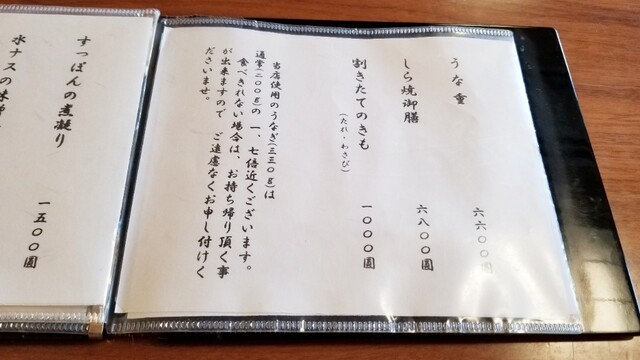 うな重
六六〇〇圓
しら焼御膳
六八〇〇圓
割きたてのきも
(たれ・わさび)
一〇〇〇圓
当店使用のうなぎ(三三〇g)は
通常(二〇〇g)の一、七倍近くございます。
食べきれない場合は、お持ち帰り頂く事
が出来ますので ご遠慮なくお申し付けく
ださいませ。
すっぽんの煮凝り
一五〇〇圓
水ナスの